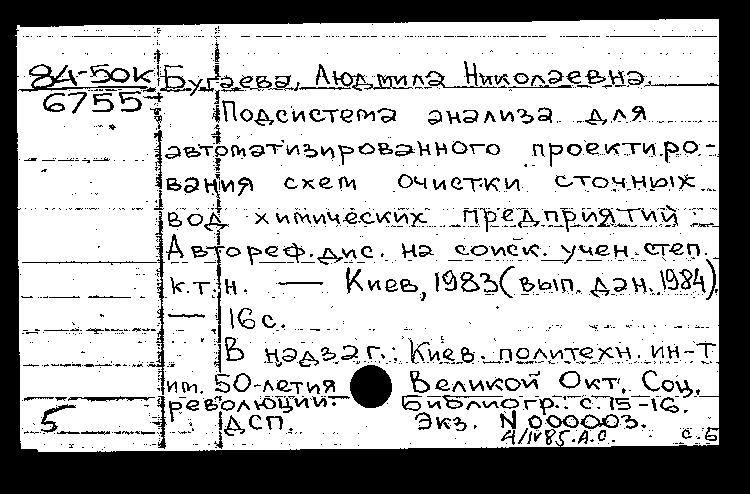 84-50к Бугаева, Людмила Николаевна.
6755
Подсистема анализа для
автоматизированного проектиро-
вания схем очистки сточных
вод химических предприятий:
Автореф. дис. на соиск. учен. степ.
к.т.н. — Киев, 1983 (вып. дан. 1984)
— 16 с.
В надзаг.: Киев. политехн. ин-т
им. 50-летия Великой Окт. Соц.
революции. Библиогр.: с. 15-16.
5 ДСП. Экз. N 000003.
4/IV85. А.О. с. Б